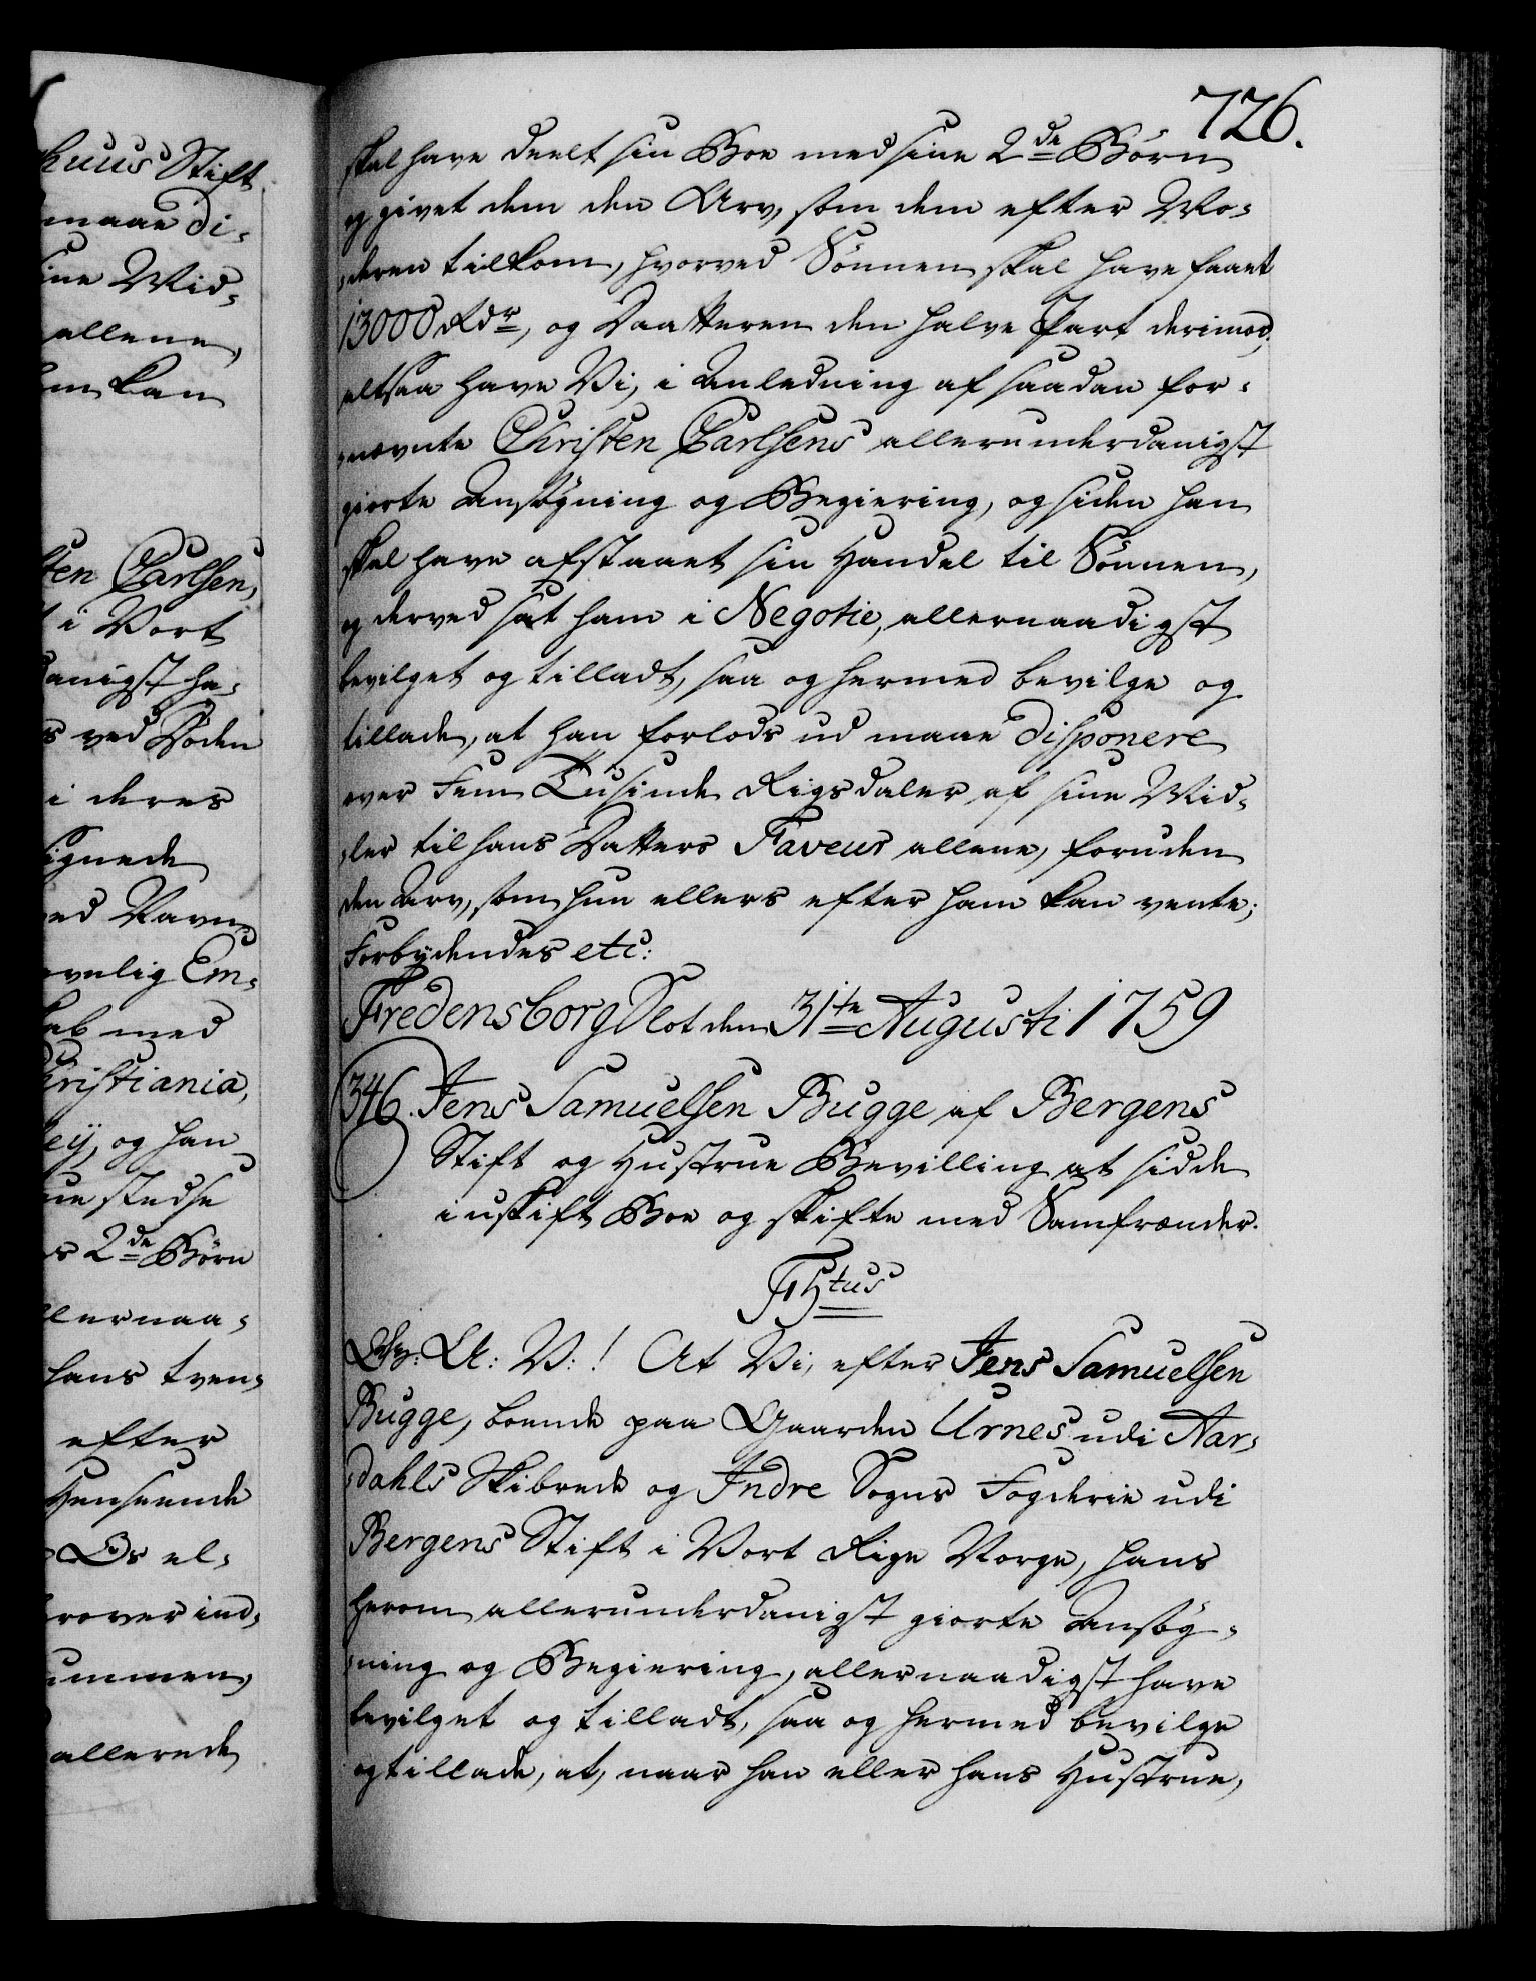 huus Stift
maae di-
ine Mid-
allene,
ham kan
sten Carlsen,
i Vort
danigst ha-
s ved Døden
i deres
signede
ed Navn
Em-
kab med
Christiania,
og han
ne stedse
s 2de Børn
llernaa-
hans tven-
efter
Henseende
Os al-
rover ind-
ummen,
allerede
726.
skal have deelt sin Boe med sine 2de Børn
og givet dem den Arv, som dem efter Mo-
deren tilkom, hvorved Sønnen skal have faaet
13000 Rdr, og Daatteren den halve Part derimod;
altsaa have Vi, i Anledning af saadan for-
nævnte Christen Carlsens allerunderdanigst
giorte Ansøgning og Begiering, og siden han
skal have afstaaet sin Handel til Sønnen,
og derved sat ham i Negotie, allernaadigst
bevilget og tilladt, saa og hermed bevilge og
tillade, at han forlods ud maae disponere
over Fem Tusinde Rigsdaler af sine Mid-
ler til hans Datters Faveur allene, foruden
den Arv, som hun ellers efter ham kan vente;
Forbydendes etc:
Fredensborg Slot den 31te Augusti 1759
346. Jens Samuelsen Bugge af Bergens
Stift og Hustrue Bevilling at sidde
i uskift Boe og skifte med Samfrænder.
F 5tus
Gr: A: V: ! At Vi, efter Jens Samuelsen
Bugge, boende paa Gaarden Urnes udi Aar-
dahls Skibrede og Indre Sogns Fogderie udi
Bergens Stift i Vort Rige Norge, hans
herom allerunderdanigst giorte Ansøg-
ning og Begiering, allernaadigst have
bevilget og tilladt, saa og hermed bevilge
og tillade, at, naar han eller hans Hustrue,